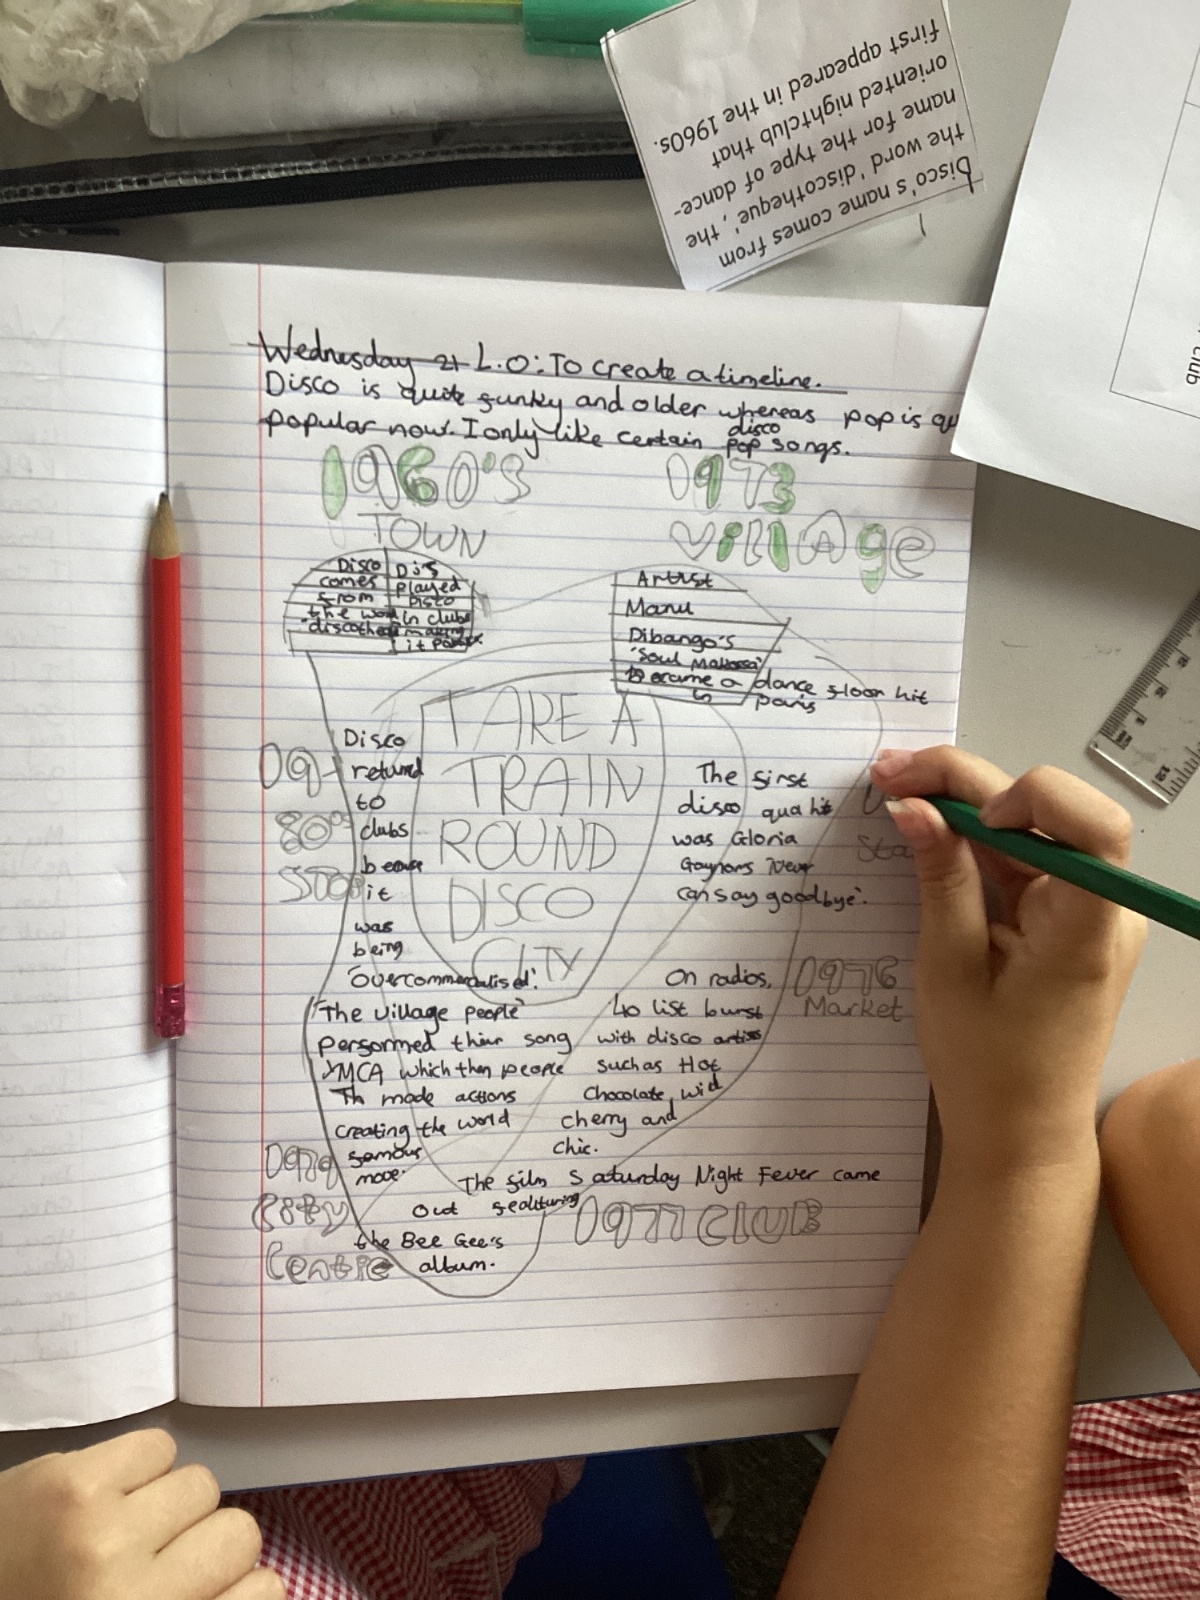 Disco's name comes from
the word 'discotheque', the
name for the type of dance-
oriented nightclub that
first appeared in the 1960s.
club
Wednesday 21 L.O: To create a timeline.
Disco is quite funky and older whereas pop is qu
disco
popular now. I only like certain pop songs.
1960's
TOWN
Disco
comes
from
the word
"discotheque
DJ's
played
Disco
in clubs
making
it
1973
Village
Artist
Manu
Dibango's
'Soul Makossa'
became a dance floor hit
in paris
TAKE A
TRAIN
ROUND
DISCO
CITY
The first
disco qua hit
was Gloria
Gaynors 'Never
can say goodbye'.
Sta
1976
Market
On radios,
40 list burst
with disco artiss
such as Hot
Chocolate, wid
cherry and
chic.
1977 CLUB
The film Saturday Night Fever came
out
the Bee Gee's
album.
1979
City
Centre
"The village people"
performed their song
YMCA which then people
Th made actions
creating the world
famous
move.
80's
STOP
Disco
retured
to
clubs
it
was
being
'overcommercialised'.